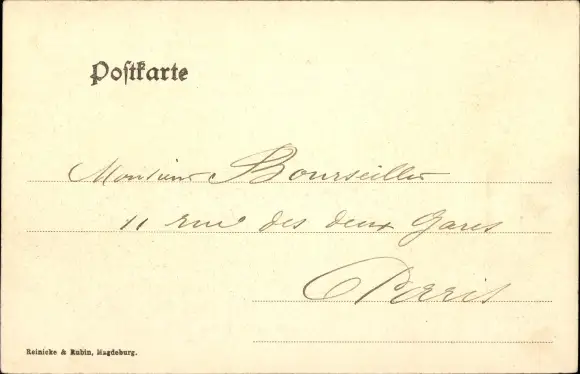 Postkarte
Monsieur Bourseiller
11 rue des deux Gares
Paris
Reinicke & Rubin, Magdeburg.